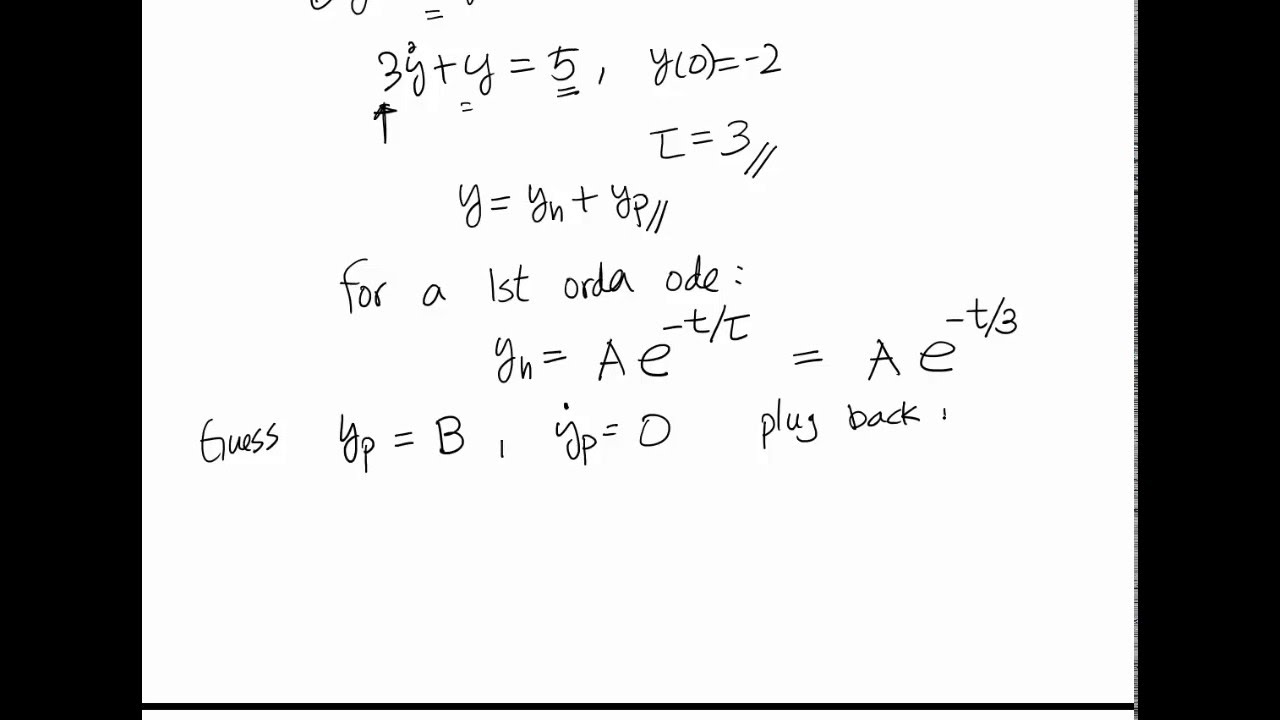 3ẏ + y = 5, y(0) = -2
τ = 3 //
y = yₕ + yₚ //
For a 1st orda ode:
yₕ = A e^(-t/τ) = A e^(-t/3)
Guess yₚ = B, ẏₚ = 0 plug back,